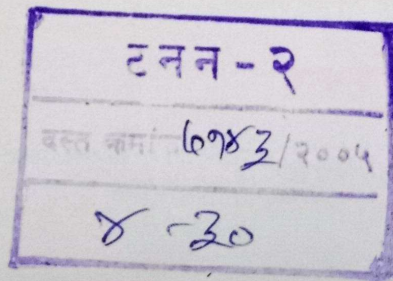 टनन-२
दस्त क्रमांक ७१४३/२००५
४-३०